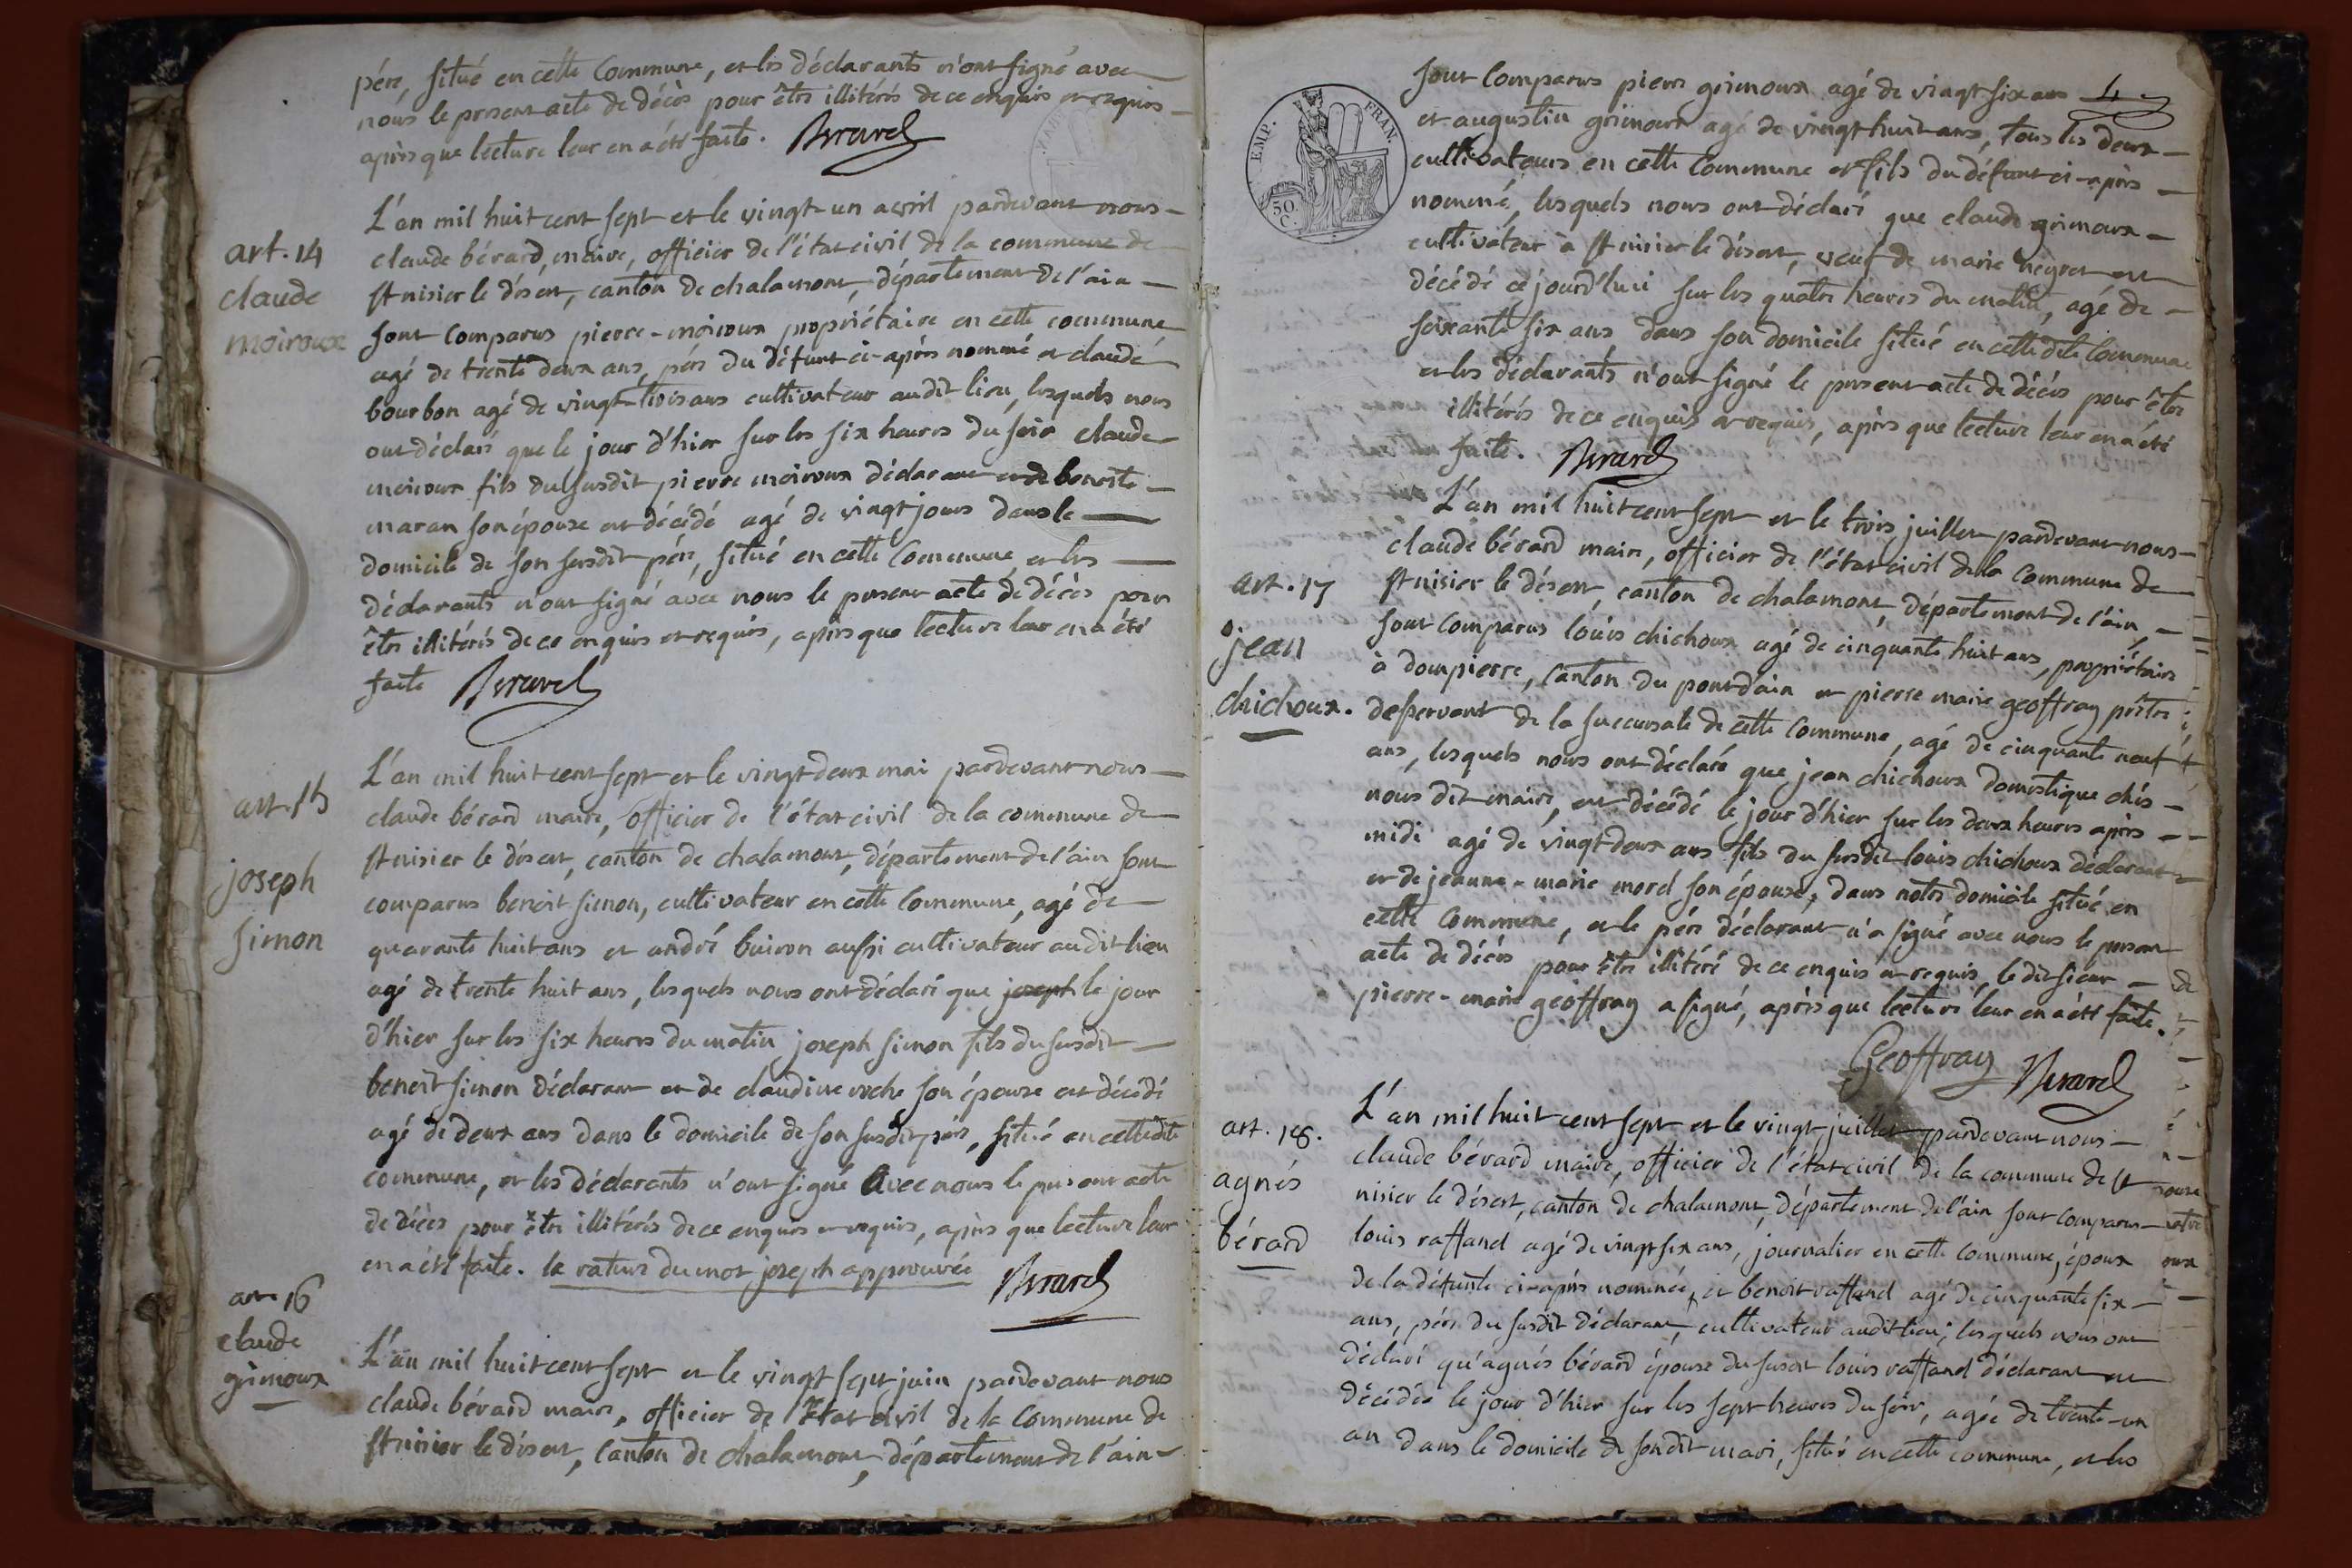 pére, situé en cette Commune, et les déclarants n'ont signé avec
nous le present acte de décès pour être illitérés de ce enquis et requis
après que lecture leur en a été faite. Berard
art. 14
claude
moiroux
L'an mil huit cent sept et le vingt-un avril pardevant nous
claude bérard, maire, officier de l'état civil de la commune de
st nisier le désert, canton de chalamont, département de l'ain
sont comparus pierre-moiroux propriétaire en cette commune
agé de trente deux ans, pére du défunt ci-après nommé et claude
bourbon agé de vingt-trois ans cultivateur audit lieu, lesquels nous
ont déclaré que le jour d'hier sur les six heures du soir claude
moiroux fils du susdit pierre moiroux déclarant et de benoite
maran son épouse est décédé agé de vingt jours dans le
domicile de son susdit pére, situé en cette Commune et les
déclarants n'ont signé avec nous le present acte de décès pour
être illitérés de ce enquis et requis, après que lecture leur en a été
faite Berard
art. 15
joseph
simon
L'an mil huit cent sept et le vingt deux mai pardevant nous
claude bérard maire, officier de l'état civil de la commune de
st nisier le désert, canton de chalamont, département de l'ain sont
comparus benoit simon, cultivateur en cette Commune, agé de
quarante huit ans et andré buiron aussi cultivateur audit lieu
agé de trente huit ans, lesquels nous ont déclaré que joseph le jour
d'hier sur les six heures du matin joseph simon fils du susdit
benoit simon déclarant et de claudine roche son épouse est décédé
agé de deux ans dans le domicile de son susdit pére, situé en cettedite
commune, et les déclarants n'ont signé avec nous le present acte
de décès pour être illitérés de ce enquis et requis, après que lecture leur
en a été faite. la rature du mot joseph approuvée Berard
art. 16
claude
grimoux
L'an mil huit cent sept et le vingt sept juin pardevant nous
claude bérard maire, officier de l'état civil de la Commune de
st nisier le désert, canton de chalamont, département de l'ain
EMP. FRAN.
50 C.
4
sont comparus pierre grimoux agé de vingt six ans
et augustin grimoux agé de vingt huit ans, tous les deux
cultivateurs en cette Commune et fils du défunt ci-après
nommé, lesquels nous ont déclaré que claude grimoux
cultivateur à st nisier le désert, veuf de marie neyret est
décédé cejourd'hui sur les quatre heures du matin, agé de
soixante six ans, dans son domicile situé en cettedite Commune
et les déclarants n'ont signé le present acte de décès pour être
illitérés de ce enquis et requis, après que lecture leur en a été
faite. Berard
art. 17
jean
chichoux.
L'an mil huit cent sept et le trois juillet pardevant nous
claude bérard maire, officier de l'état civil de la Commune de
st nisier le désert, canton de chalamont, département de l'ain,
sont comparus louis chichoux agé de cinquante huit ans, propriétaire
à dompierre, Canton du pont d'ain et pierre marie geoffray prêtre
desservant de la succursale de cette Commune, agé de cinquante neuf
ans, lesquels nous ont déclaré que jean chichoux domestique chés
nous dit maire, est décédé le jour d'hier sur les deux heures après
midi agé de vingt-deux ans fils du susdit louis chichoux déclarant
et de jeanne-marie morel son épouse, dans notre domicile situé en
cette Commune, et le pére déclarant n'a signé avec nous le present
acte de décés pour être illitéré de ce enquis et requis, le dit sieur
pierre-marie geoffray a signé, après que lecture leur en a été faite.
Geoffray Berard
art. 18.
agnés
bérard
L'an mil huit cent sept et le vingt juillet pardevant nous
claude bérard maire, officier de l'état civil de la commune de st
nisier le désert, canton de chalamont, département de l'ain sont comparus
louis raffand agé de vingt six ans, journalier en cette commune, époux
de la défunte ci-après nommée, et benoit raffand agé de cinquante six
ans, pére du susdit déclarant, cultivateur audit lieu; lesquels nous ont
déclaré qu'agnés bérard épouse du susdit louis raffand déclarant est
décédée le jour d'hier sur les sept heures du soir, agée de trente-un
an dans le domicile de son dit mari, situé en cette commune, et les